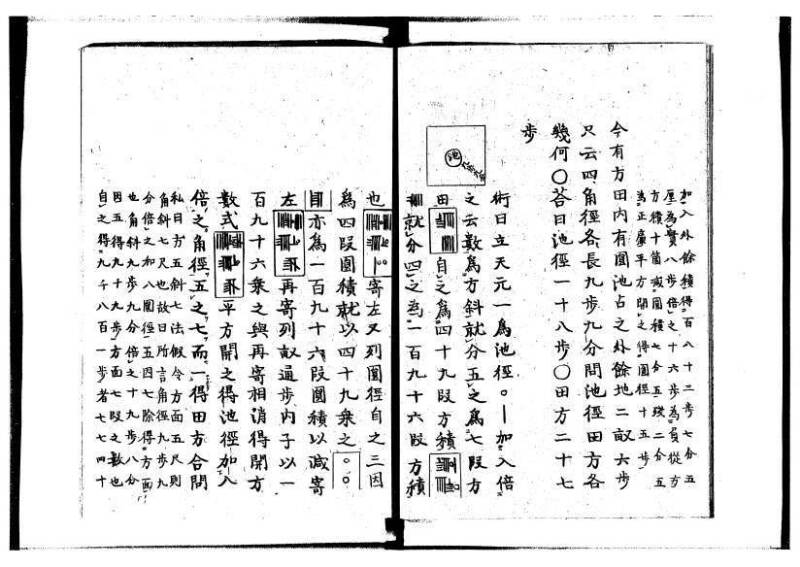 加入外餘積得百八十二步七分五
厘為實八步倍之十六步為負從方
方積十箇減圓積七分五球二分五
為正廉平方開之得圓徑十五步
今有方田内有圓池占之外餘地二畝六步
只云四角徑各長九步九分問池徑田方各
幾何〇荅曰池徑一十八步〇田方二十七
步
池
術曰立天元一為池徑。加入倍
之云數為方斜就分五之為七段方
田自之為四十九段方積
就分四之為一百九十六段方積
也寄左又列圓徑自之三因
為四段圓積就以四十九乘之
亦為一百九十六段圓積以減寄
左再寄列畝通步内子以一
百九十六乘之與再寄相消得開方
數式平方開之得池徑加入
倍之角徑五之七而一得田方合問
私曰方五斜七法假令方面五尺則
角斜七尺也故曰所言角徑九步九
分倍之加入圓徑五因七除得方面
也角斜九步九分倍之十九步八分
因五得九十九步方面七段之數也
自之得九千八百一步者七七四十